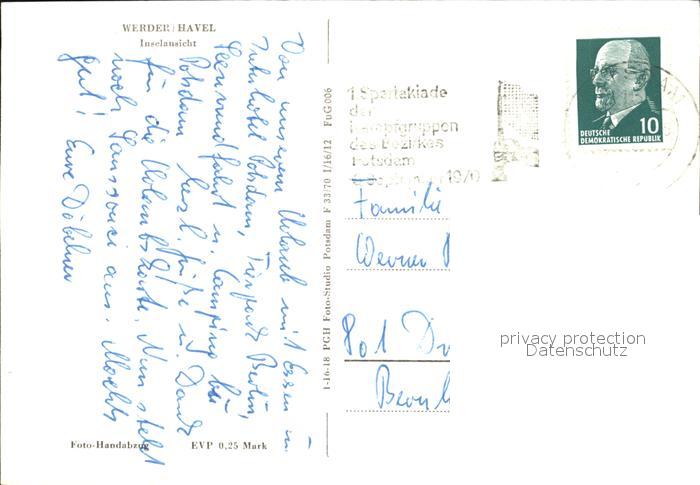 WERDER/HAVEL
Inselansicht
Von unserem Urlaub mit Essen im
Interhotel Potsdam, Tierpark Berlin,
Seenrundfahrt u. Camping bei
Potsdam herzl. Grüße u. Dank
für die Urlaubskarte. Nun steht
noch Sanssouci aus. Machts
gut! Eure Döbelner
Foto-Handabzug EVP 0,25 Mark
1-16-18 PGH Foto-Studio Potsdam F 33/70 I/16/12 FuG006
1. Spartakiade
der
Kampfgruppen
des Bezirkes
Potsdam
September 1970
DEUTSCHE
DEMOKRATISCHE REPUBLIK
10
Familie
Werner
801 Dr
privacy protection
Datenschutz